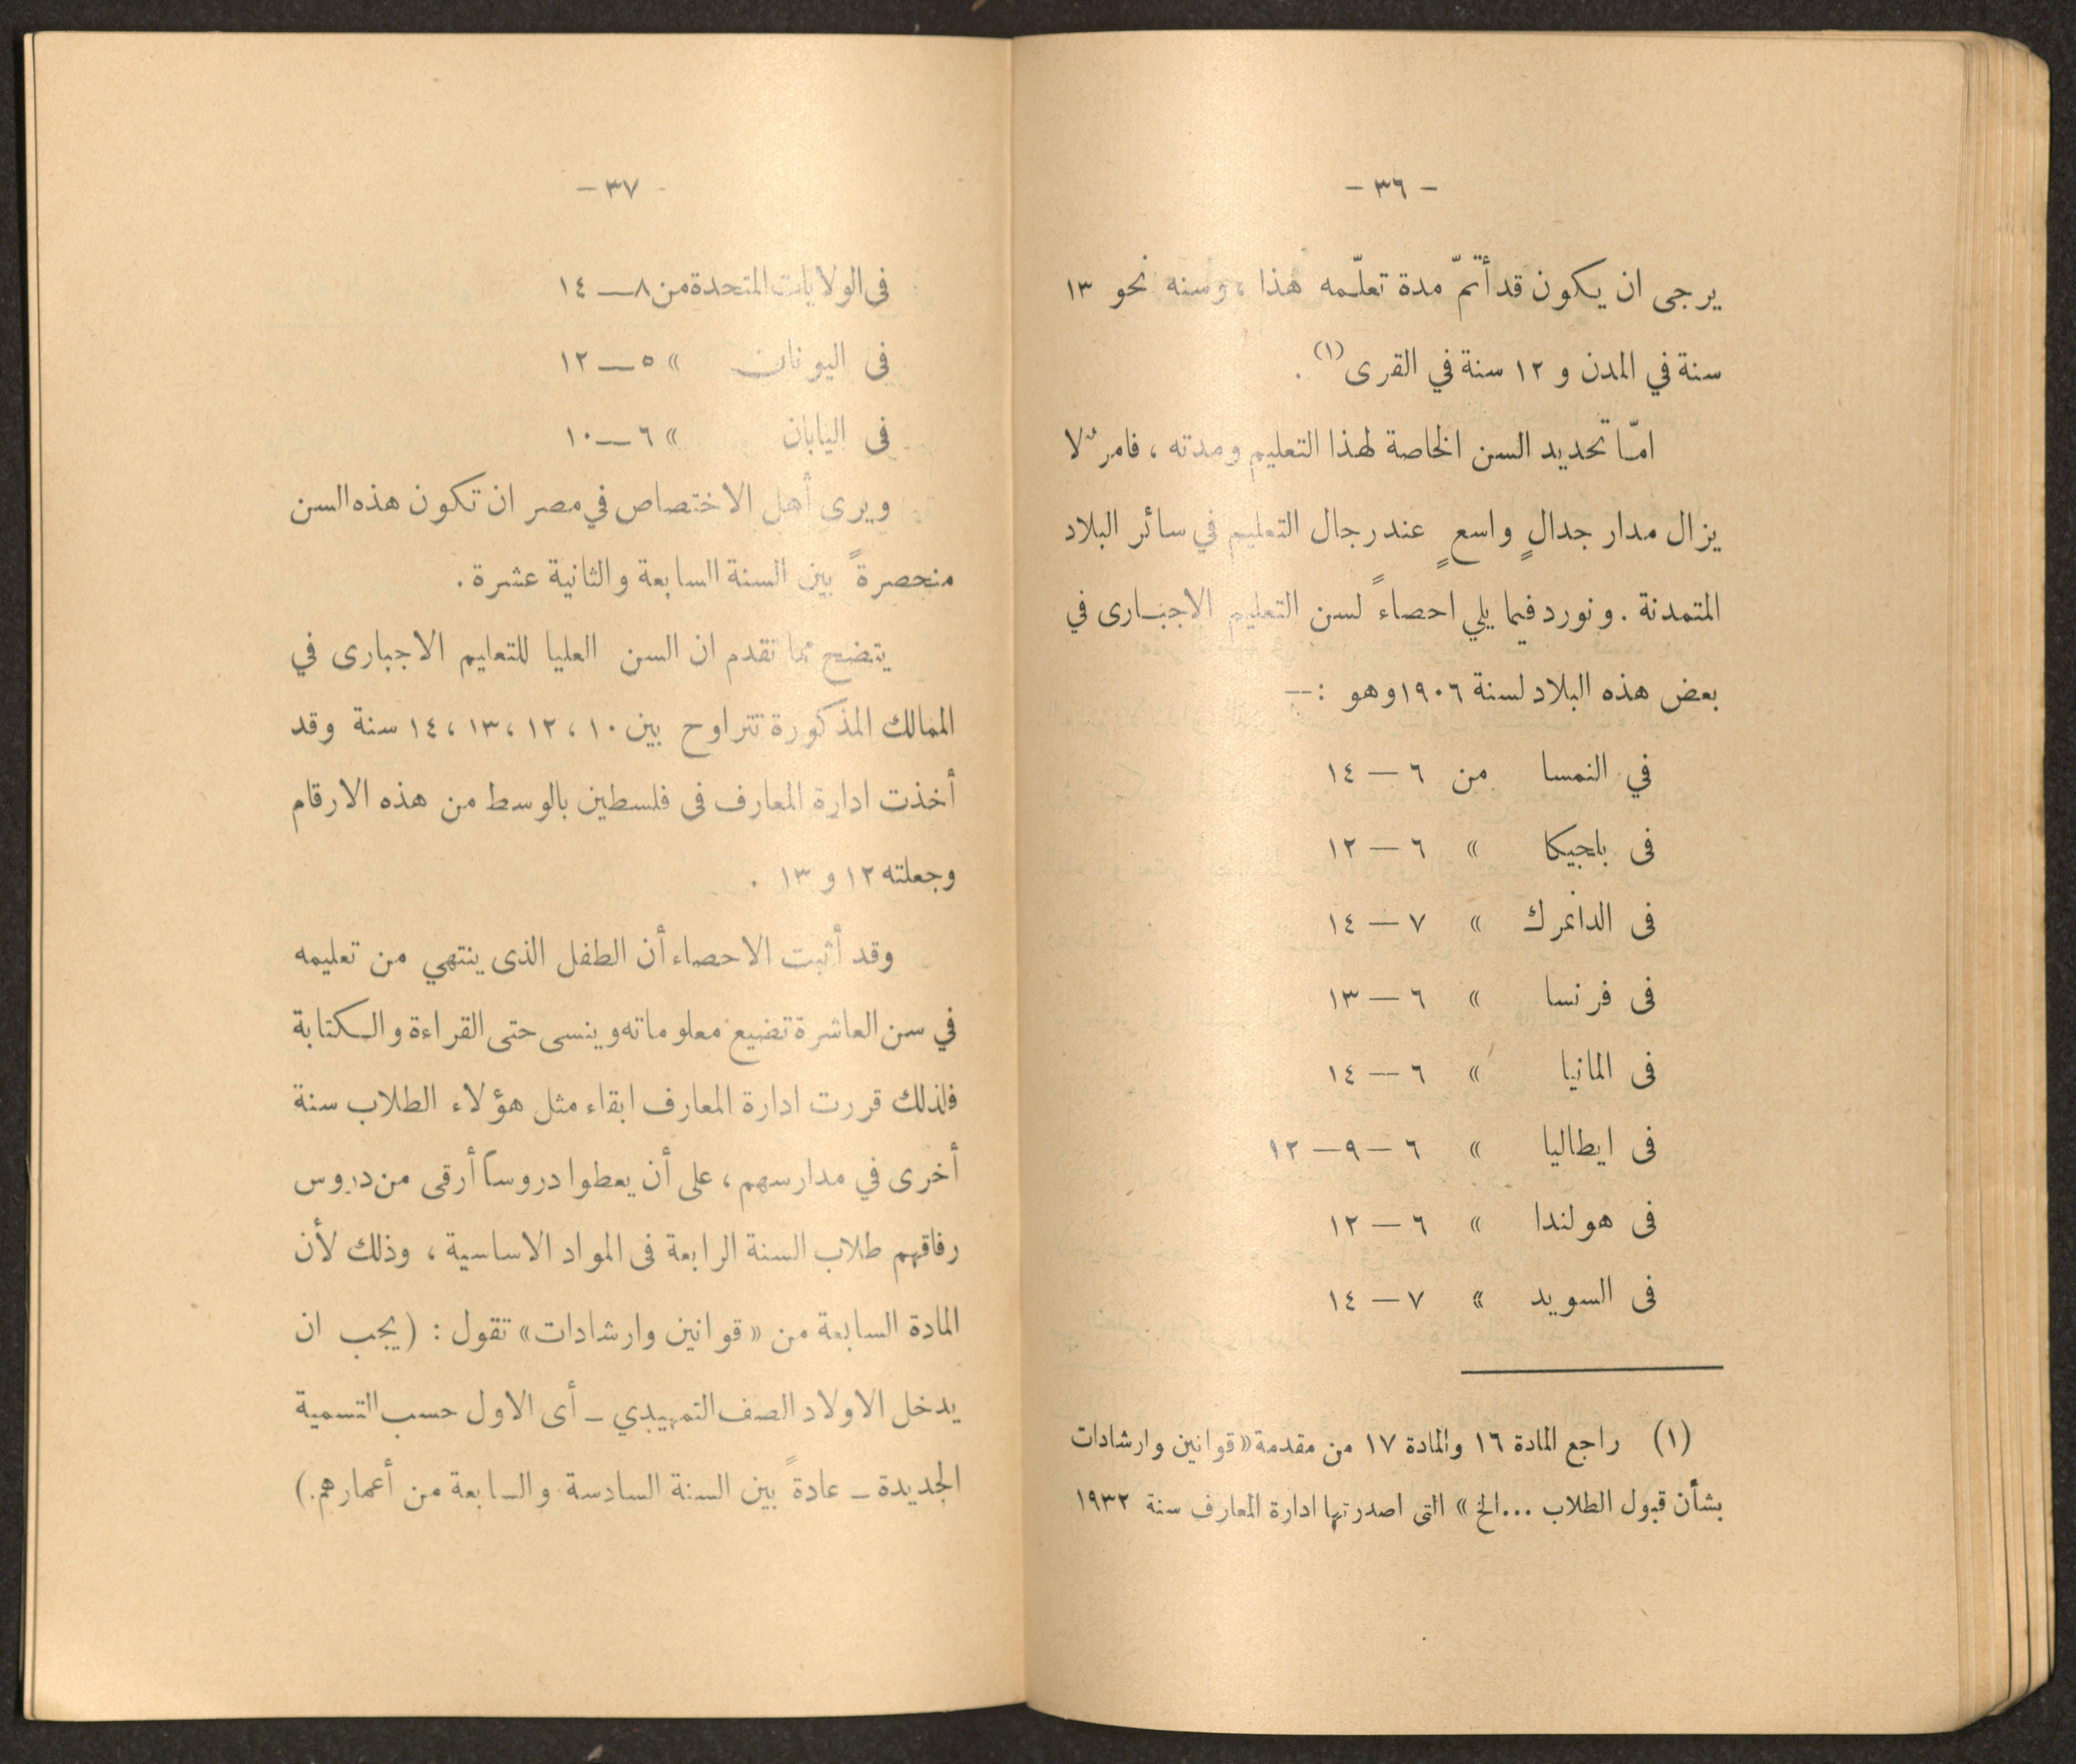 - ٣٦ -
يرجى ان يكون قد أتمّ مدة تعلّمه هذا ، وسنه نحو ١٣
سنة في المدن و ١٢ سنة في القرى (١) .
امّا تحديد السن الخاصة لهذا التعليم ومدته ، فامرٌ لا
يزال مدار جدالٍ واسعٍ عند رجال التعليم في سائر البلاد
المتمدنة . ونورد فيما يلي احصاءً لسن التعليم الاجبارى في
بعض هذه البلاد لسنة ١٩٠٦ وهو :—
في النمسا من ٦ — ١٤
فى بلجيكا » ٦ — ١٢
فى الدانمرك » ٧ — ١٤
فى فرنسا » ٦ — ١٣
فى المانيا » ٦ — ١٤
فى ايطاليا » ٦ — ٩ — ١٢
فى هولندا » ٦ — ١٢
فى السويد » ٧ — ١٤
(١) راجع المادة ١٦ والمادة ١٧ من مقدمة « قوانين وارشادات
بشأن قبول الطلاب ... الخ » التى اصدرتها ادارة المعارف سنة ١٩٣٢
- ٣٧ -
فى الولايات المتحدة من ٨ — ١٤
فى اليونان » ٥ — ١٢
فى اليابان » ٦ — ١٠
ويرى أهل الاختصاص في مصر ان تكون هذه السن
منحصرةً بين السنة السابعة والثانية عشرة .
يتضح مما تقدم ان السن العليا للتعليم الاجبارى في
الممالك المذكورة تتراوح بين ١٠ ، ١٢ ، ١٣ ، ١٤ سنة وقد
أخذت ادارة المعارف فى فلسطين بالوسط من هذه الارقام
وجعلته ١٢ و ١٣ .
وقد أثبت الاحصاء أن الطفل الذى ينتهي من تعليمه
في سن العاشرة تضيع معلوماته وينسى حتى القراءة والكتابة
فلذلك قررت ادارة المعارف ابقاء مثل هؤلاء الطلاب سنة
أخرى في مدارسهم ، على أن يعطوا دروساً أرقى من دروس
رفاقهم طلاب السنة الرابعة فى المواد الاساسية ، وذلك لأن
المادة السابعة من « قوانين وارشادات » تقول : ( يجب ان
يدخل الاولاد الصف التمهيدي ـ أى الاول حسب التسمية
الجديدة ـ عادةً بين السنة السادسة والسابعة من أعمارهم . )